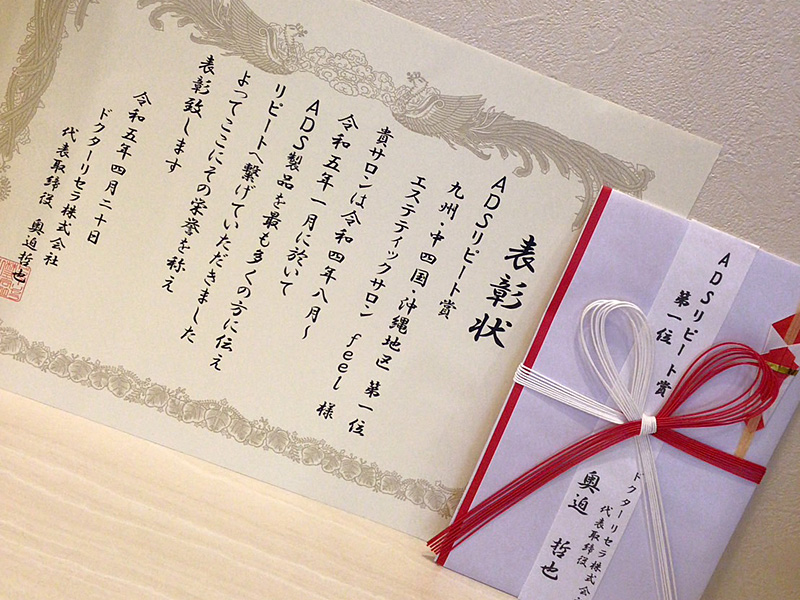 表彰状
ADSリピート賞
九州・中四国・沖縄地区 第一位
エステティックサロン feel 様
貴サロンは令和四年八月〜
令和五年一月に於いて
ADS製品を最も多くの方に伝え
リピートへ繋げていただきました
よってここにその栄誉を称え
表彰致します
令和五年四月二十日
ドクターリセラ株式会社
代表取締役 奥迫哲也
ADSリピート賞
第一位
ドクターリセラ株式会社
代表取締役
奥迫 哲也